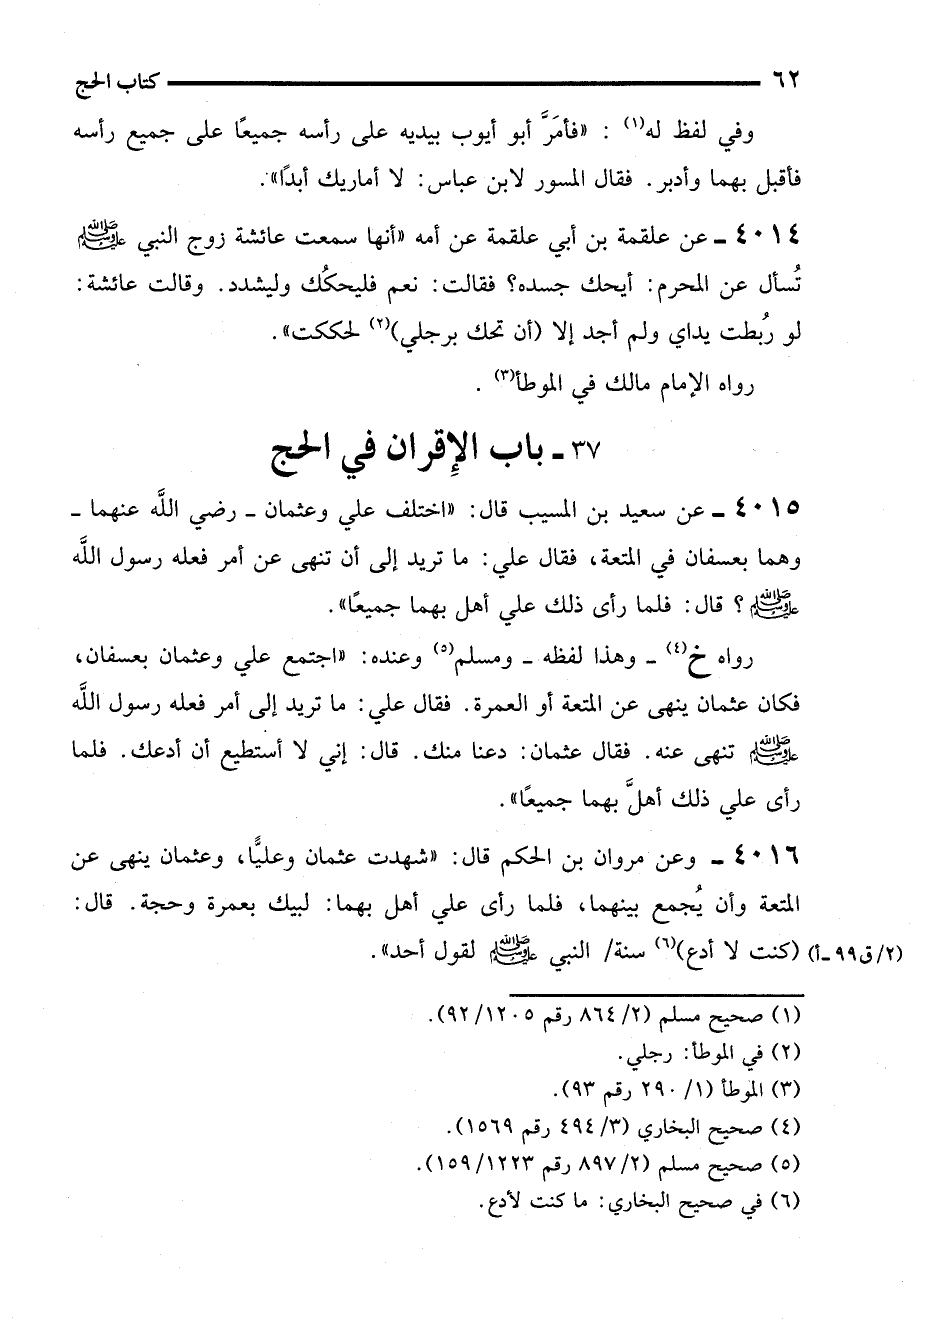 ٦٢ كتاب الحج
وفي لفظ له(١) : «فأمَرَّ أبو أيوب بيديه على رأسه جميعًا على جميع رأسه
فأقبل بهما وأدبر. فقال المسور لابن عباس: لا أماريك أبدًا».
٤٠١٤ ـ عن علقمة بن أبي علقمة عن أمه «أنها سمعت عائشة زوج النبي ﷺ
تُسأل عن المحرم: أيحك جسده؟ فقالت: نعم فليحكُك وليشدد. وقالت عائشة:
لو رُبطت يداي ولم أجد إلا (أن تحك برجلي)(٢) لحككت».
رواه الإمام مالك في الموطأ(٣) .
٣٧ ـ باب الإِقران في الحج
٤٠١٥ ـ عن سعيد بن المسيب قال: «اختلف علي وعثمان ـ رضي اللَّه عنهما ـ
وهما بعسفان في المتعة، فقال علي: ما تريد إلى أن تنهى عن أمر فعله رسول اللَّه
ﷺ؟ قال: فلما رأى ذلك علي أهل بهما جميعًا».
رواه خ(٤) ـ وهذا لفظه ـ ومسلم(٥) وعنده: «اجتمع علي وعثمان بعسفان،
فكان عثمان ينهى عن المتعة أو العمرة. فقال علي: ما تريد إلى أمر فعله رسول اللَّه
ﷺ تنهى عنه. فقال عثمان: دعنا منك. قال: إني لا أستطيع أن أدعك. فلما
رأى علي ذلك أهلَّ بهما جميعًا».
٤٠١٦ ـ وعن مروان بن الحكم قال: «شهدت عثمان وعليًّا، وعثمان ينهى عن
المتعة وأن يُجمع بينهما، فلما رأى علي أهل بهما: لبيك بعمرة وحجة. قال:
(٢/ق٩٩ـأ) (كنت لا أدع)(٦) سنة/ النبي ﷺ لقول أحد».
(١) صحيح مسلم (٢/ ٨٦٤ رقم ١٢٠٥/ ٩٢).
(٢) في الموطأ: رجلي.
(٣) الموطأ (١/ ٢٩٠ رقم ٩٣).
(٤) صحيح البخاري (٣/ ٤٩٤ رقم ١٥٦٩).
(٥) صحيح مسلم (٢/ ٨٩٧ رقم ١٢٢٣/ ١٥٩).
(٦) في صحيح البخاري: ما كنت لأدع.